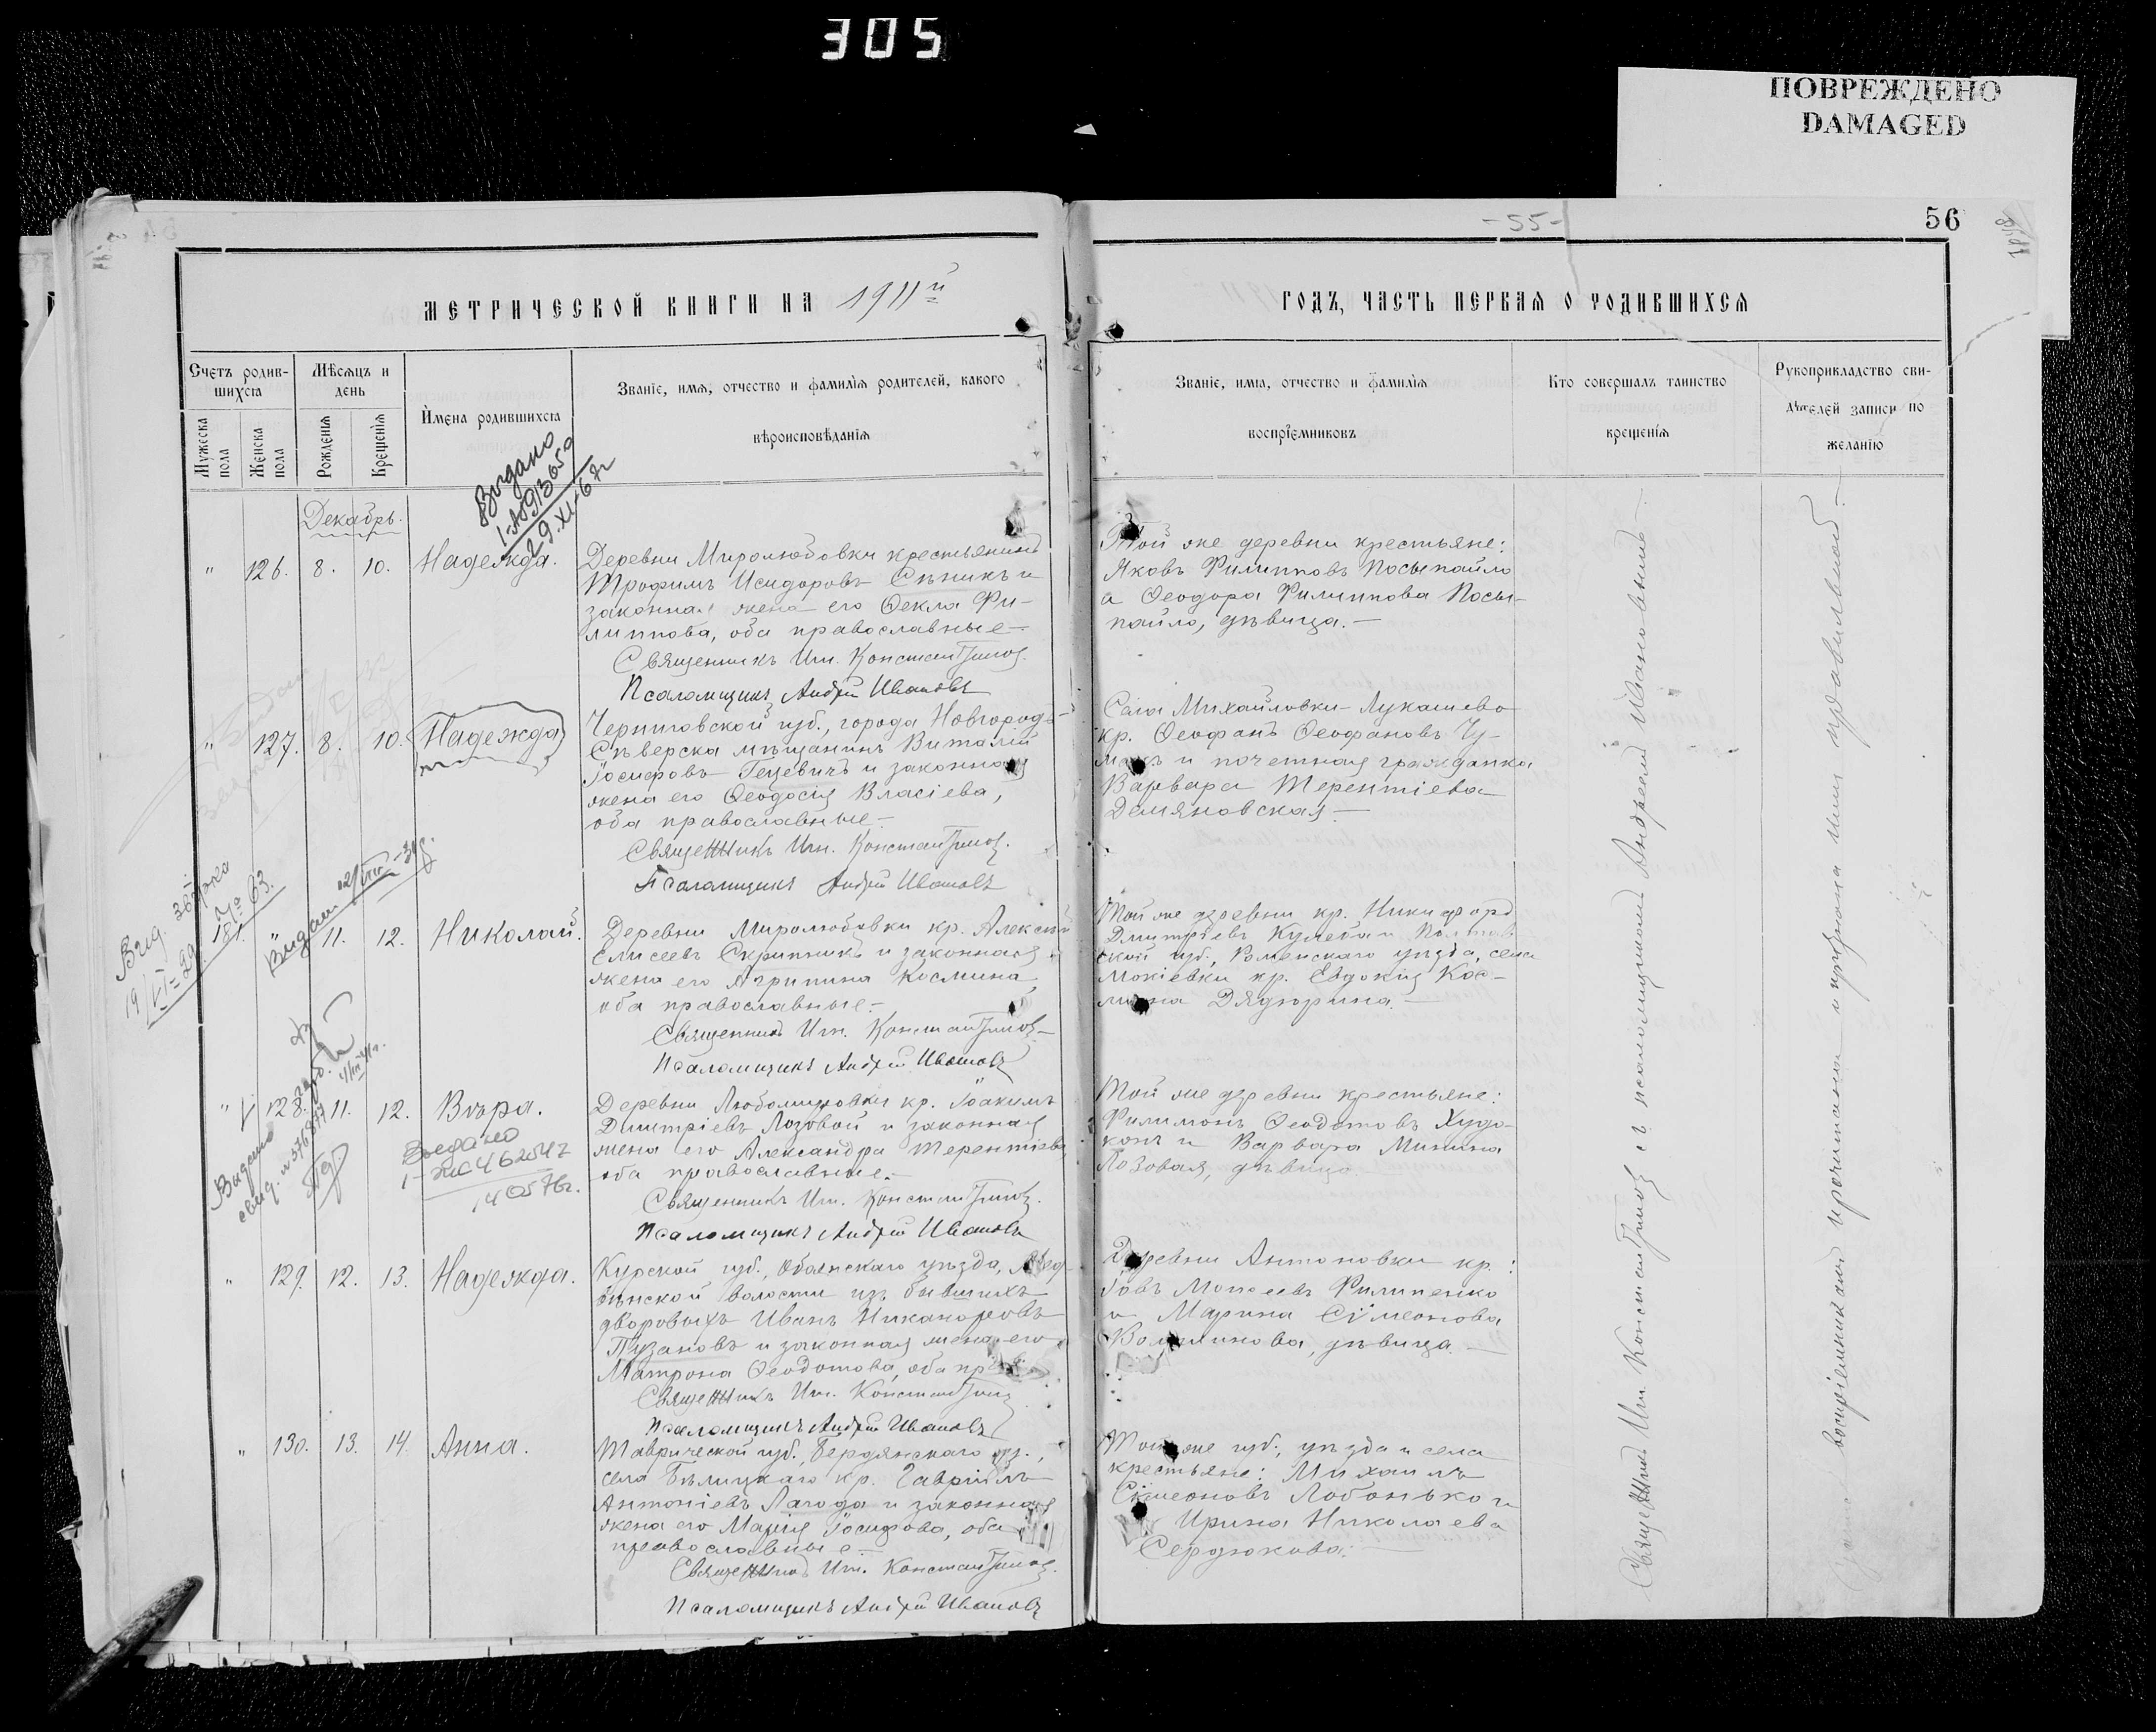 305
ПОВРЕЖДЕНО
DAMAGED
-55-
56
МЕТРИЧЕСКОЙ КНИГИ НА 1911й
ГОДЪ, ЧАСТЬ ПЕРВАЯ О РОДИВШИХСЯ
Счетъ родив-
шихся
Мужеска
пола
Женска
пола
Мѣсяцъ и
день
Рожденія
Крещенія
Имена родившихся
Званіе, имя, отчество и фамилія родителей, какого
вѣроисповѣданія
Званіе, имя, отчество и фамилія
воспріемниковъ
Кто совершалъ таинство
крещенія
Рукоприкладство сви-
дѣтелей записи по
желанію
Выдано
29.XI-67г
Декабрь.
" 126. 8. 10. Надежда.
Деревни Миролюбовки крестьянинъ
Трофимъ Исидоровъ Сѣникъ и
законная жена его Ѳекла Фи-
липпова, оба православные
Священникъ Ип. Константинов
Псаломщикъ Андрей Ивановъ
Той же деревни крестьяне:
Яковъ Филипповъ Посыпайло
а Ѳеодора Филиппова Посы-
пайло, дѣвица.
" 127. 8. 10. Надежда
Черниговской губ., города Новгородъ-
Сѣверска мѣщанинъ Виталій
Іосифовъ Гецевичъ и законная
жена его Ѳеодосія Власіева,
оба православные
Священникъ Ип. Константинов.
Псаломщикъ Андрей Ивановъ
Села Михайловки-Лукашево
кр. Ѳеофанъ Ѳеофановъ Чу-
макъ и почетная гражданка
Варвара Терентіева
Демяновская
Выдан
" 11. 12. Николай.
Деревни Миролюбовки кр. Алексѣй
Елисеевъ Скрипникъ и законная
жена его Агрипина Космина,
оба православные.
Священникъ Ип. Константинов
Псаломщикъ Андрей Ивановъ
Той же деревни кр. Никифоръ
Дмитріевъ Кулебаи Полтав-
ской губ., Роменскаго уѣзда, села
Мокіевки кр. Евдокія Кос-
мина Дядюрина
" 128. 11. 12. Вѣра.
Выдано
Выдано
свид.
Деревни Любомировки кр. Іоакимъ
Дмитріевъ Лозовой и законная
жена его Александра Терентіева
оба православные.
Священникъ Ип. Константинов.
Псаломщикъ Андрей Ивановъ
Той же деревни крестьяне:
Филимонъ Ѳеодотовъ Худо-
конъ и Варвара Минина
Лозовая, дѣвица
" 129. 12. 13. Надежда.
Курской губ., Обоянскаго уѣзда,
волости изъ бывшихъ
дворовыхъ Иванъ Никаноровъ
Пузановъ и законная жена его
Матрона Ѳеодотова, оба прав.
Священникъ Ип. Константинов
Псаломщикъ Андрей Ивановъ
Деревни Антоновки кр.:
Іовъ Моисеевъ Филипенко
и Марина Сѵмеонова
дѣвица
" 130. 13. 14. Анна.
Таврической губ., Бердянскаго уз.,
села Бѣлицкаго кр. Гавріилъ
Антоніевъ Лагода и законная
жена его Марія Іосифова, оба
православные
Священникъ Ип. Константинов.
Псаломщикъ Андрей Ивановъ
Той же губ., уѣзда и села
крестьяне: Михаилъ
Сѵмеоновъ Лобонько и
Ирина Николаева
Сердюкова.
Священникъ Ип. Константинов съ псаломщикомъ Андреем Ивановымъ